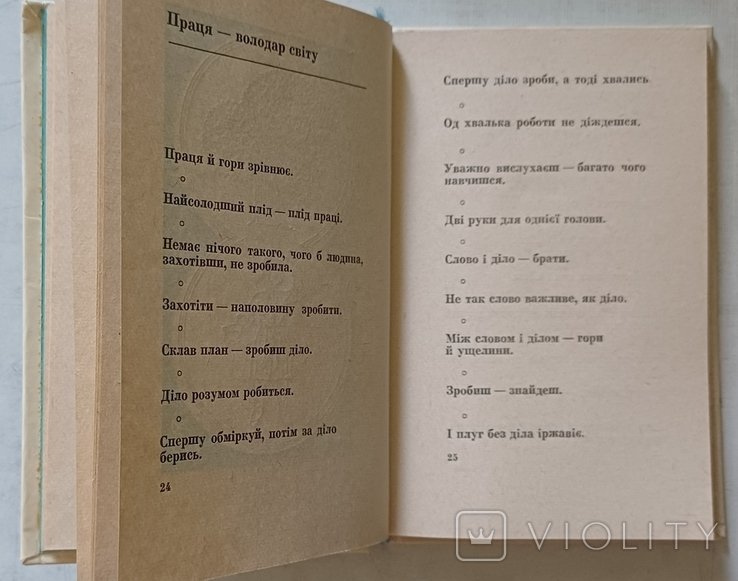 Праця — володар світу
Праця й гори зрівнює.
Найсолодший плід — плід праці.
Немає нічого такого, чого б людина,
захотівши, не зробила.
Захотіти — наполовину зробити.
Склав план — зробиш діло.
Діло розумом робиться.
Спершу обміркуй, потім за діло
берись.
24
Спершу діло зроби, а тоді хвались
Од хвалька роботи не діждешся.
Уважно вислухаєш — багато чого
навчишся.
Дві руки для однієї голови.
Слово і діло — брати.
Не так слово важливе, як діло.
Між словом і ділом — гори
й ущелини.
Зробиш — знайдеш.
І плуг без діла іржавіє.
25
VIOLITY